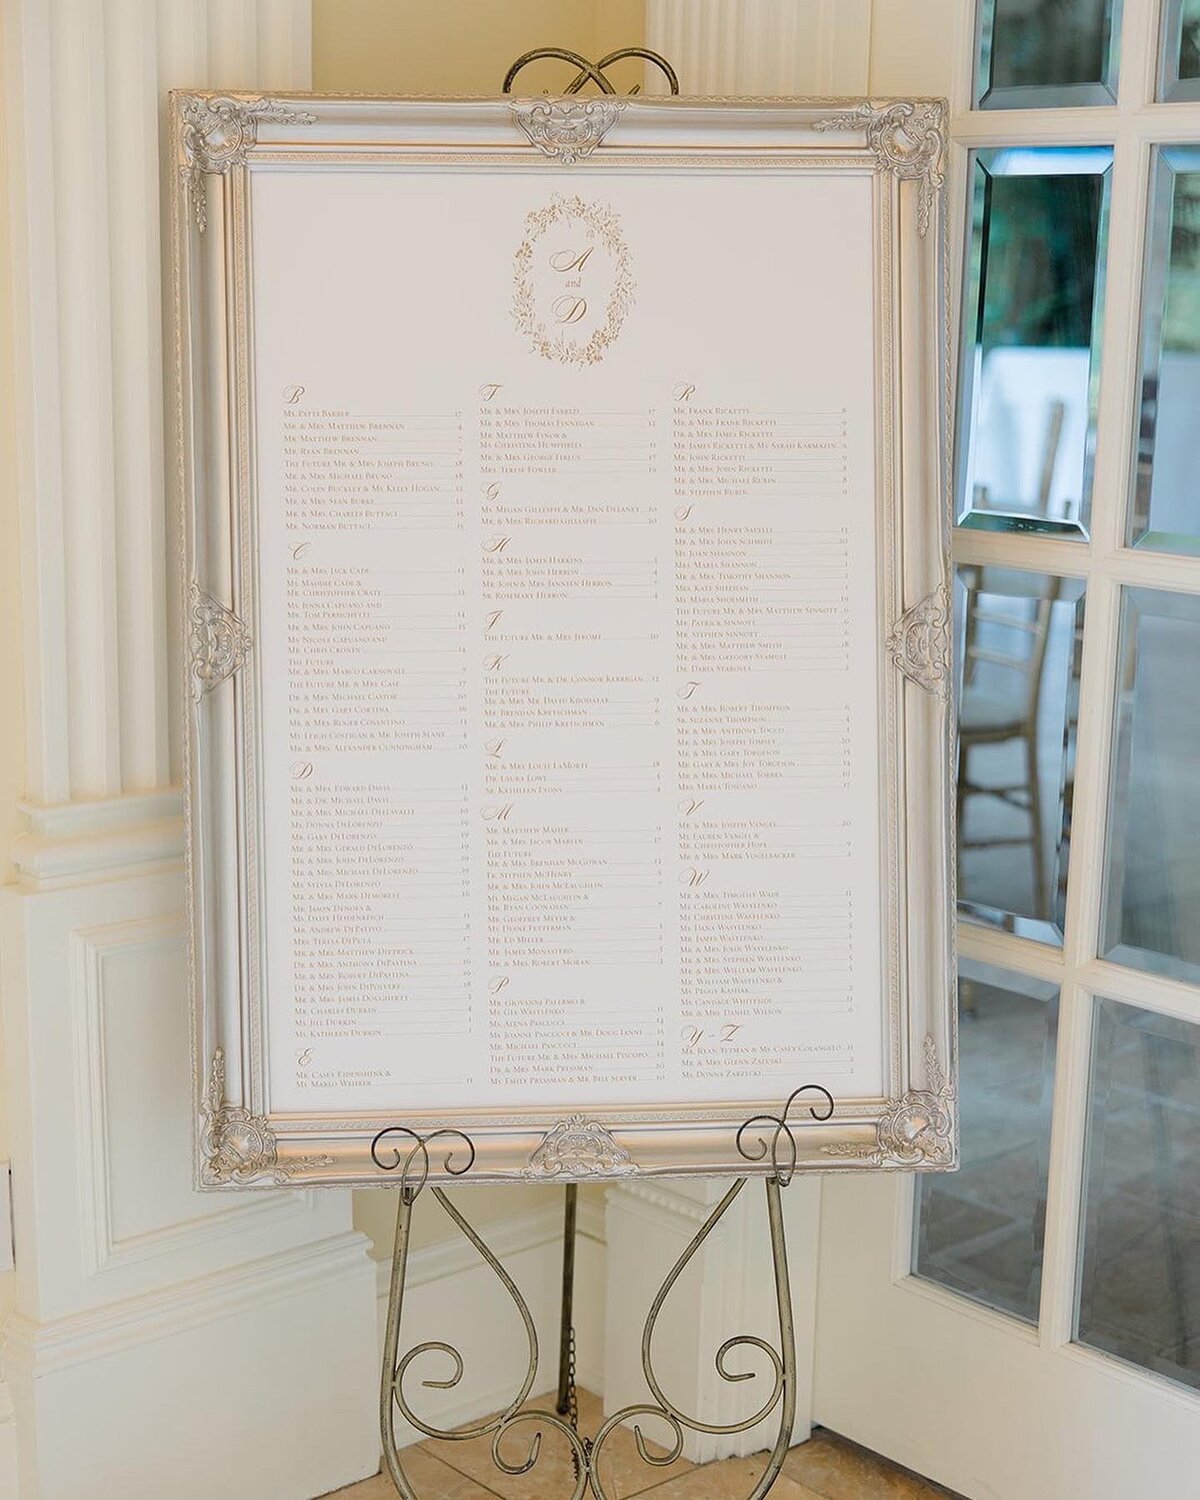 A
and
D
B
Ms. Patti Barber 17
Mr. & Mrs. Matthew Brennan 4
Mr. Matthew Brennan
Mr. Ryan Brennan
The Future Mr. & Mrs. Joseph Bruno 18
Mr. & Mrs. Michael Bruno 18
Mr. Colin Buckley & Ms. Kelly Hogan 12
Mr. & Mrs. Sean Burke 12
Mr. & Mrs. Charles Buttaci 15
Mr. Norman Buttaci 15
C
Mr. & Mrs. Jack Cade 13
Ms. Maddie Cade &
Mr. Christopher Crate
Ms. Jenna Capuano and
Mr. Tom Persichetti 14
Mr. & Mrs. John Capuano 15
Ms. Nicole Capuano and
Mr. Chris Cronin 14
The Future
Mr. & Mrs. Marco Carnovale 7
The Future Mr. & Mrs. Case 17
Dr. & Mrs. Michael Castor 20
Dr. & Mrs. Gary Cortina 16
Mr. & Mrs. Roger Cosantino 13
Ms. Leigh Costigan & Mr. Joseph Slane 4
Mr. & Mrs. Alexander Cunningham 10
D
Mr. & Mrs. Edward Davis 13
Mr. & Dr. Michael Davis 6
Mr. & Mrs. Michael Dellavalle 10
Ms. Donna DeLorenzo 19
Mr. Gary DeLorenzo 19
Mr. & Mrs. Gerald DeLorenzo 19
Mr. & Mrs. John DeLorenzo 19
Mr. & Mrs. Michael DeLorenzo 19
Ms. Sylvia DeLorenzo 19
Mr. & Mrs. Mark Demorest 16
Mr. Jason Denofa &
Ms. Daisy Heidenreich 15
Mr. Andrew DiPativo 8
Mrs. Teresa DePula 17
Mr. & Mrs. Matthew Dietrick 7
Dr. & Mrs. Anthony DiPastina 16
Mr. & Mrs. Robert DiPastina 20
Dr. & Mrs. John DiPolvere 18
Mr. & Mrs. James Dougherty 3
Mr. Charles Durkin 1
Ms. Jill Durkin 1
Ms. Kathleen Durkin 1
E
Mr. Casey Eidenshink &
Ms. Marlo Wehrer 11
F
Mr. & Mrs. Joseph Fabrizi 17
Mr. & Mrs. Thomas Finnegan 12
Mr. Matthew Finor &
Ms. Christina Humphries 11
Mr. & Mrs. George Firlus 17
Mrs. Terese Fowler 19
G
Ms. Megan Gillespie & Mr. Dan Delaney 20
Mr. & Mrs. Richard Gillespie 20
H
Mr. & Mrs. James Harkins 1
Mr. & Mrs. John Herron
Mr. John & Mrs. Jannien Herron
Sr. Rosemary Herron 4
J
The Future Mr. & Mrs. Jerome 10
K
The Future Mr. & Dr. Connor Kerrigan 12
The Future
Mr. & Mrs. Mr. David Khodayar 9
Mr. Brendan Kretschman 6
Mr. & Mrs. Philip Kretschman 6
L
Mr. & Mrs. Louie LaMorte 18
Dr. Laura Lowe 4
Sr. Kathleen Lyons 4
M
Mr. Matthew Maher 9
Mr. & Mrs. Jacob Marlin 17
The Future
Mr. & Mrs. Brendan McGowan 12
Fr. Stephen McHenry 8
Mr. & Mrs. John McLaughlin 7
Ms. Megan McLaughlin &
Mr. Ryan Coonahan 7
Mr. Geoffrey Meyer &
Ms. Diane Fetterman 1
Mr. Ed Miller 2
Mr. James Monastero 3
Mr. & Mrs. Robert Moran 3
P
Mr. Giovanni Palermo &
Ms. Gia Wasylenko 11
Ms. Alina Pascucci
Ms. Joanne Pascucci & Mr. Doug Lenni 15
Mr. Michael Pascucci 14
The Future Mr. & Mrs. Michael Piscopo 12
Dr. & Mrs. Mark Pressman 20
Ms. Emily Pressman & Mr. Beix Server 10
R
Mr. Frank Ricketti 8
Mr. & Mrs. Frank Ricketti 9
Dr. & Mrs. James Ricketti 8
Mr. James Ricketti & Ms. Sarah Karmazin 9
Mr. John Ricketti 9
Mr. & Mrs. John Ricketti 8
Mr. & Mrs. Michael Rubin 8
Mr. Stephen Rubin 9
S
Mr. & Mrs. Henry Savelli 13
Mr. & Mrs. John Schmidt 20
Ms. Joan Shannon 4
Mrs. Maria Shannon
Mr. & Mrs. Timothy Shannon
Mrs. Kate Sheehan
Ms. Maria Sholsmith 19
The Future Mr. & Mrs. Matthew Sinnott 6
Mr. Patrick Sinnott 6
Mr. Stephen Sinnott 6
Mr. & Mrs. Matthew Smith 18
Mr. & Mrs. Gregory Stamell 3
Dr. Daria Starosta 2
T
Mr. & Mrs. Robert Thompson 6
Sr. Suzanne Thompson 4
Mr. & Mrs. Anthony Tocco 4
Mr. & Mrs. Joseph Tomsey 20
Mr. & Mrs. Gary Torgeson 15
Mr. Gary & Mrs. Joy Torgeson 14
Mr. & Mrs. Michael Torres 10
Mrs. Maria Toscano 17
V
Mr. & Mrs. Joseph Vangel 20
Ms. Lauren Vangel &
Mr. Christopher Hope 9
Mr. & Mrs. Mark Vogelbacker 2
W
Mr. & Mrs. Timothy Wade 13
Ms. Caroline Wasylenko 5
Ms. Christine Wasylenko 5
Ms. Liana Wasylenko 5
Mr. James Wasylenko 5
Mr. & Mrs. John Wasylenko 5
Mr. & Mrs. Stephen Wasylenko 5
Mr. & Mrs. William Wasylenko 5
Mr. William Wasylenko &
Ms. Peggy Kasiak 2
Ms. Candace Whiteside 11
Mr. & Mrs. Daniel Wilson 6
Y-Z
Mr. Ryan Yetman & Ms. Casey Colangelo 11
Mr. & Mrs. Glenn Zalusky 2
Ms. Donna Zarzecki 2